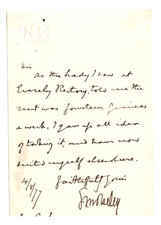 Sir
As the lady I saw at
Eversley Rectory, told me the
rent was fourteen guineas
a week, I gave up all idea
of taking it, and have now
suited myself elsewhere.
Faithfully yours